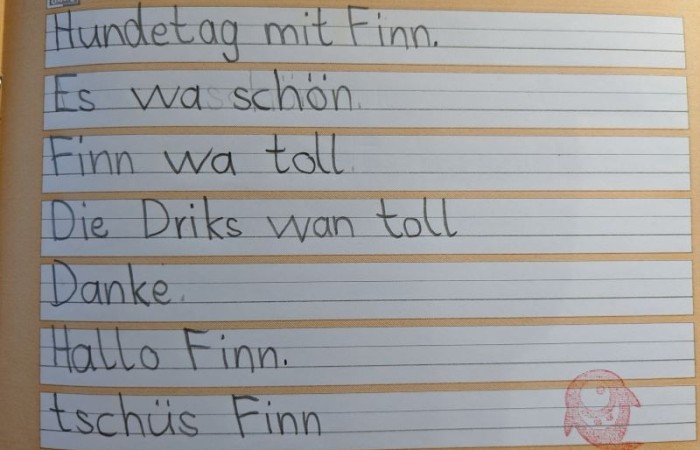 Hundetag mit Finn.
Es wa schön.
Finn wa toll.
Die Driks wan toll
Danke.
Hallo Finn.
tschüs Finn